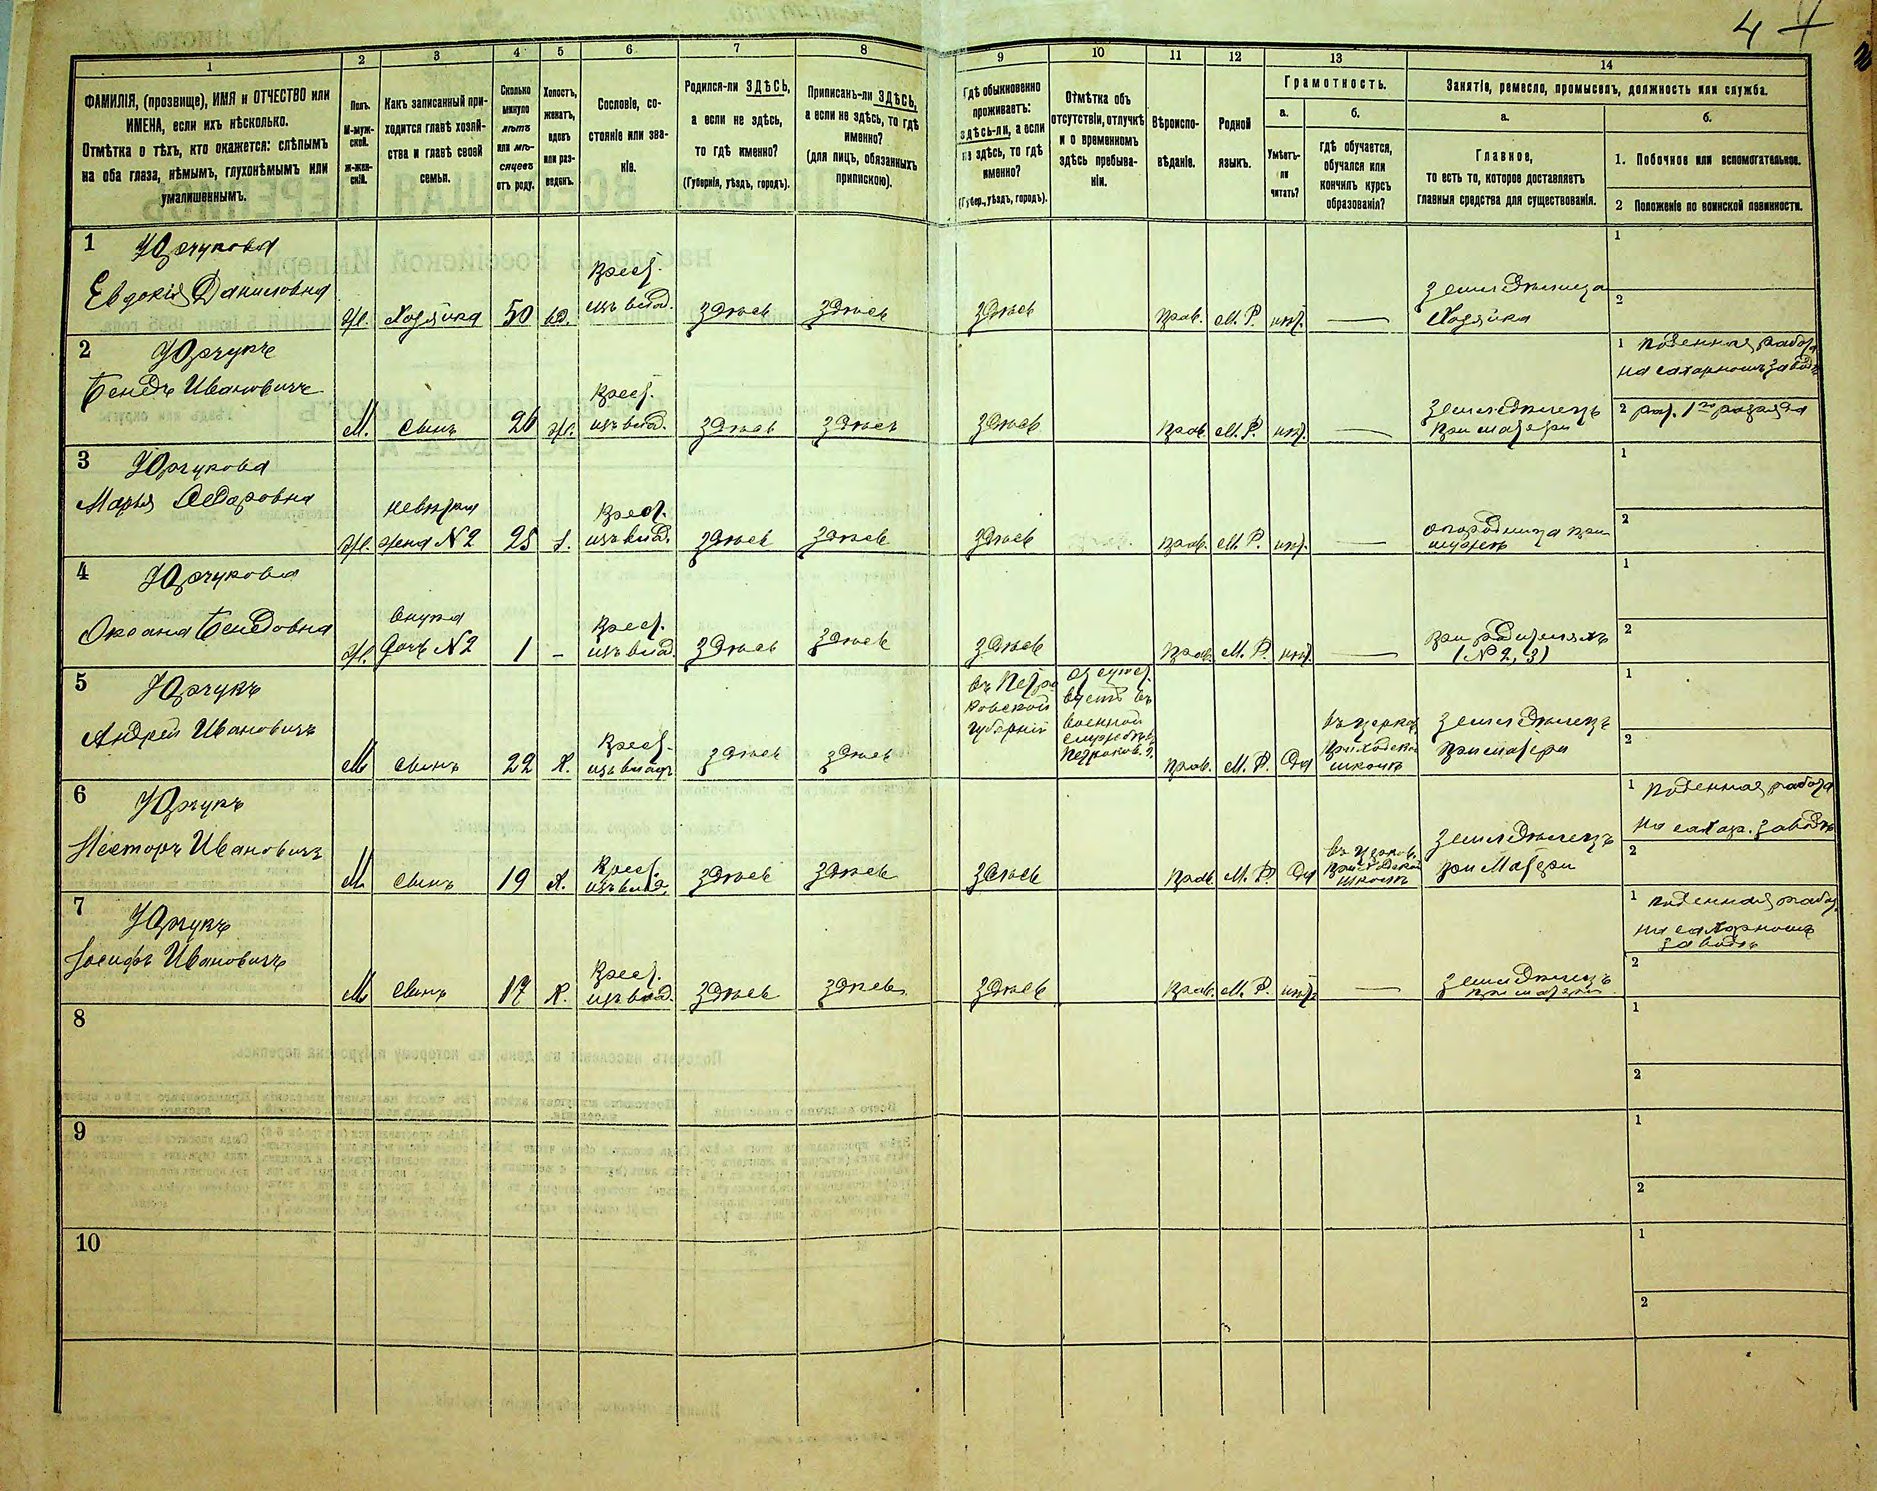 4 4
1
2
3
4
5
6
7
8
9
10
11
12
13
14
ФАМИЛІЯ, (прозвище), ИМЯ и ОТЧЕСТВО или
ИМЕНА, если ихъ нѣсколько.
Отмѣтка о тѣхъ, кто окажется: слѣпымъ
на оба глаза, нѣмымъ, глухонѣмымъ или
умалишеннымъ.
Полъ.
М-муж-
ской.
Ж-жен-
скій.
Какъ записанный при-
ходится главѣ хозяй-
ства и главѣ своей
семьи.
Сколько
минуло
лѣтъ
или мѣ-
сяцевъ
отъ роду.
Холостъ,
женатъ,
вдовъ
или раз-
веденъ.
Сословіе, со-
стояніе или зва-
ніе.
Родился-ли ЗДѢСЬ,
а если не здѣсь,
то гдѣ именно?
(Губернія, уѣздъ, городъ).
Приписанъ-ли ЗДѢСЬ,
а если не здѣсь, то гдѣ
именно?
(для лицъ, обязанныхъ
припискою).
Гдѣ обыкновенно
проживаетъ:
здѣсь-ли, а если
не здѣсь, то гдѣ
именно?
(Губер., уѣздъ, городъ).
Отмѣтка объ
отсутствіи, отлучкѣ
и о временномъ
здѣсь пребыва-
ніи.
Вѣроиспо-
вѣданіе.
Родной
языкъ.
Грамотность.
а.
Умѣетъ-
ли
читать?
б.
гдѣ обучается,
обучался или
кончилъ курсъ
образованія?
Занятіе, ремесло, промыселъ, должность или служба.
а.
Главное,
то есть то, которое доставляетъ
главныя средства для существованія.
б.
1. Побочное или вспомогательное.
2 Положеніе по воинской повинности.
1 Юрчукова
Евдокія Даниловна
Ж. Хозяйка 50 вд.
Крест.
изъ влад.
здѣсь здѣсь здѣсь Прав. М. Р. нѣт. —
Земледѣлица
Хозяйка
1
2
2 Юрчукъ
Бенедь Ивановичъ
М. сынъ 26 ж.
Крест.
изъ влад.
здѣсь здѣсь здѣсь Прав. М. Р. нѣт. —
Земледѣлецъ
при матери
1 поденная работа
на сахарномъ заводѣ
2 рат. 1го разряда
3 Юрчукова
Марья Федоровна
Ж.
невѣстка
жена №2
25 з.
Крест.
изъ влад.
здѣсь здѣсь здѣсь Прав. М. Р. нѣт. —
огородница при
мужѣ
1
2
4 Юрчукова
Оксана Бенедовна
Ж.
внука
дочь №2
1 -
Крест.
изъ влад.
здѣсь здѣсь здѣсь Прав. М. Р. нѣт. —
при родителяхъ
(№2, 3)
1
2
5 Юрчукъ
Андрей Ивановичъ
М сынъ 22 Х.
Крест.
изъ влад.
здѣсь здѣсь
въ Петро
ковской
губерніи
отсутст.
вуетъ въ
военной
службѣ въ
Петроков. г.
Прав. М. Р. Да
въ церков.
приходской
школѣ
Земледѣлецъ
при матери
1
2
6 Юрчукъ
Несторъ Ивановичъ
М сынъ 19 Х.
Крест.
изъ влад.
здѣсь здѣсь здѣсь Прав. М. Р. Да
въ церков.
приходской
школѣ
Земледѣлецъ
при матери
1 поденная работа
на сахар. заводѣ
2
7 Юрчукъ
Іосифъ Ивановичъ
М сынъ 17 Х.
Крест.
изъ влад.
здѣсь здѣсь здѣсь Прав. М. Р. нѣт. —
Земледѣлецъ
при матери
1 поденная работ.
на сахарномъ
заводѣ
2
8
1
2
9
1
2
10
1
2